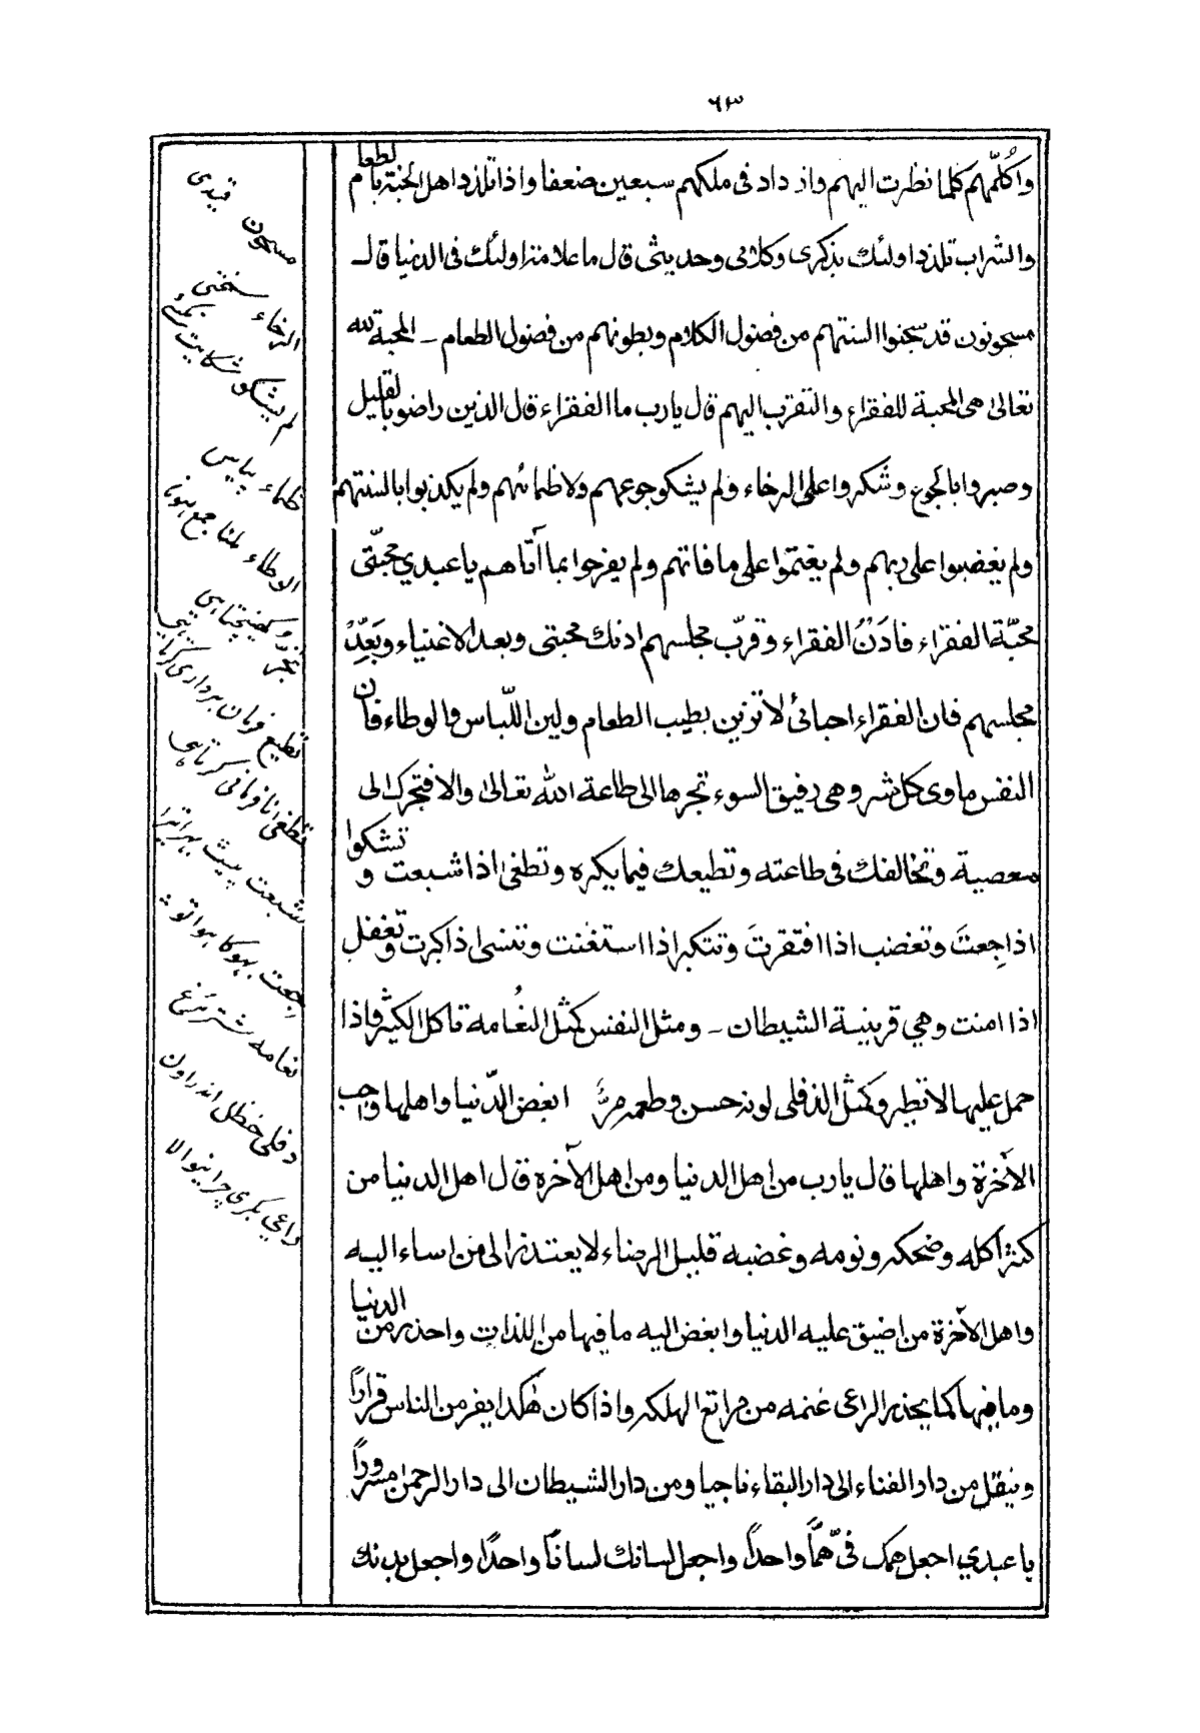 ٦٣
واُكلّمهم كلما نظرت اليهم وازداد فى ملكهم سبعين ضعفا واذا تلذذ اهل الجنة بالطعام
والشراب تلذذ اولئك بذكرى وكلامى وحديثى قال ما علامة اولئك فى الدنيا قال
مسجونون قد سجنوا السنتهم من فضول الكلام وبطونهم من فضول الطعام ـ المحبة لله
تعالىٰ هى المحبة للفقراء والتقرب اليهم قال يا رب ما الفقراء قال الذين راضو بالقليل
وصبروا بالجوع وشكروا على الرخاء ولم يشكو جوعهم ولا ظمائهم ولم يكذبوا بالسنتهم
ولم يغضبوا على ربهم ولم يغتموا على ما فاتهم ولم يفرحوا بما آتاهم يا عبدي محبّتى
محبّة الفقراء فادَنْ الفقراء وقرّب مجلسهم ادنك محبتى وبعد الاغنياء وبَعِّدْ
مجلسهم فان الفقراء احبائى لا تزين بطيب الطعام ولين اللّباس والوطاء فان
النفس ماوى كل شر وهى رفيق السوء تجرها الى طاعة الله تعالىٰ والا فتجرك الى
معصية وتخالفك فى طاعته وتطيعك فيما يكره وتطغى اذا شبعت وتشكوا
اذا جِعتَ وتغضب اذا افتقرتَ وتتكبر اذا استغنت وتنسى اذا كبرت وتغفل
اذا امنت وهي قرينية الشيطان ـ ومثل النفس كمثل النُعامه تاكل الكثير فاذا
حمل عليها لا تطير وكمثل الدفلى لونه حسن وطعمه مرٌّ ابغض الدّنيا واهلها واحب
الآخرة واهلها قال يا رب من اهل الدنيا ومن اهل الآخرة قال اهل الدنيا من
كثر اكله وضحكه ونومه وغضبه قليل الرضاء لا يعتذر الى من اساء اليه
واهل الآخرة من اضيق عليه الدنيا وابغض اليه ما فيها من اللذات واحذره من الدنيا
وما فيها كما يحذر الراعى غنمه من مراتع الهلكه واذا كان هكذا يفر من الناس قراراً
وينقل من دار الفناء الى دار البقاء ناجيا ومن دار الشيطان الى دار الرحمن مسروراً
يا عبدي اجعل همك فىّ همّاً واحداً واجعل لسانك لساناً واحدًا واجعل بدنك
مسجون قيدى
الرخاء سختى
لم يشكو شكايت نكرے
ظماء پياس
الوطاء ملنا جمع ہونا
تجر وكھينچتا ہى
تطيع فرمان بردارى كرتا ہى
تطغى نافرمانى كرتا ہى
شبعت پيٹ بھرا تيرا
جِعت بھوكا ہوا تو
نعامه شتر مرغ
دفلى حنظل اندراون
راعى بكرى چرانيوالا